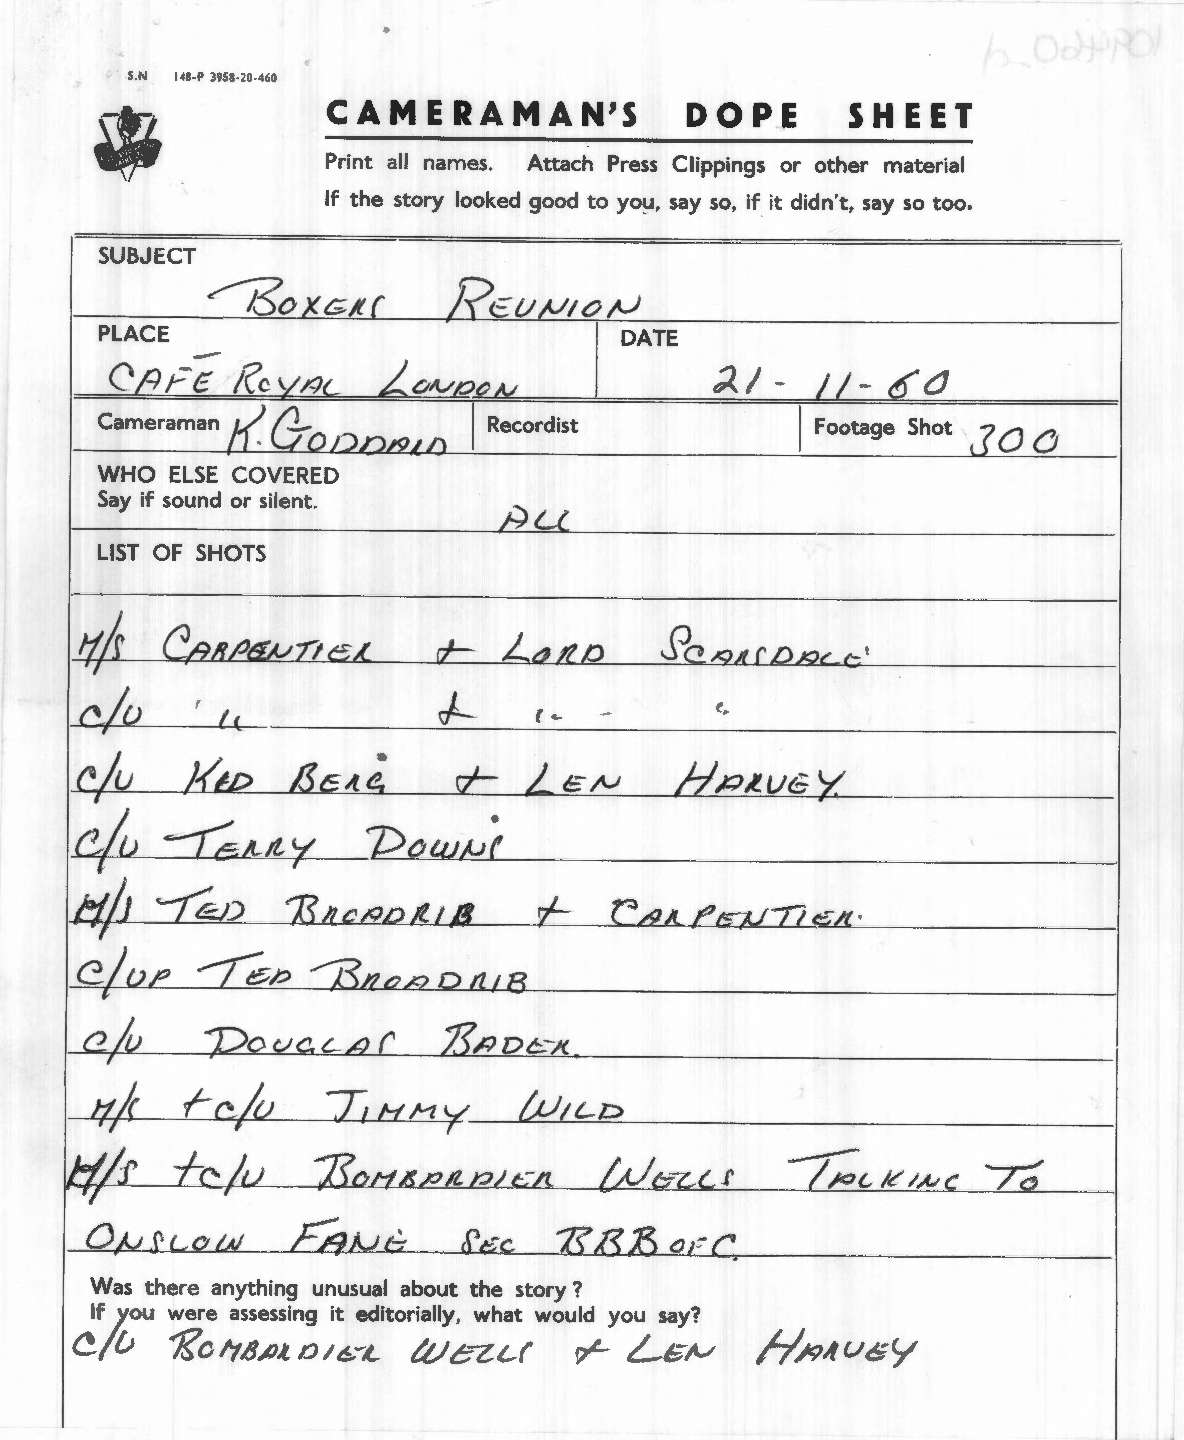 S.N 148-P 3958-20-460
CAMERAMAN'S DOPE SHEET
Print all names. Attach Press Clippings or other material
If the story looked good to you, say so, if it didn't, say so too.
SUBJECT
BOXERS REUNION
PLACE
DATE
CAFE ROYAL LONDON
21-11-60
Cameraman K. GODDARD
Recordist
Footage Shot 300
WHO ELSE COVERED
Say if sound or silent.
ALL
LIST OF SHOTS
M/S CARPENTIER + LORD SCARSDALE
C/U " + " "
C/U KID BERG + LEN HARVEY.
C/U TERRY DOWNS
M/S TED BROADRIB + CARPENTIER.
C/UP TED BROADRIB
C/U DOUGLAS BADER.
M/S + C/U JIMMY WILD
M/S + C/U BOMBARDIER WELLS TALKING TO
ONSLOW FANE SEC BBB OF C.
Was there anything unusual about the story?
If you were assessing it editorially, what would you say?
C/U BOMBARDIER WELLS + LEN HARVEY